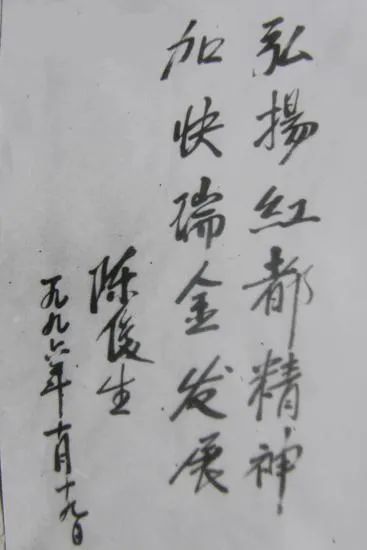 弘揚紅都精神
加快瑞金发展
陈俊生
一九九六年十月十九日